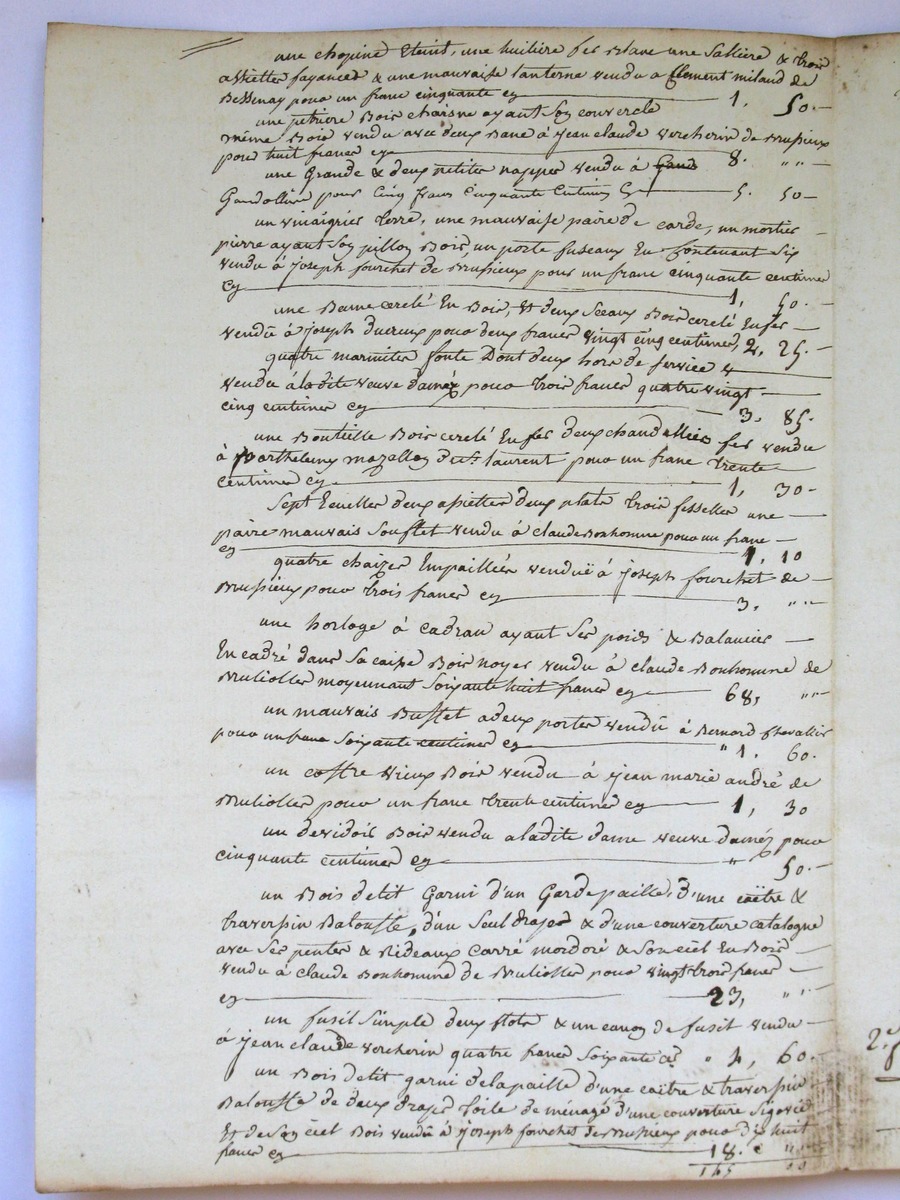 une chopine Eteint, une huiliere fer blanc une Salliere & trois
assiettes fayances & une mauvaise lanterne vendu a Clement milaud de
Bessenay pour un franc cinquante cy 1, 50
une petriere Bois chaisne ayant Son couvercle
même Bois vendu avec deux Banc à jean claude vercherin de Brussieux
pour huit francs cy 8. " "
une Grande & deux petites nappes vendu à
Gandolliere pour Cinq francs Cinquante Centimes Cy 5. 50
un vinaigrier terre, une mauvaise paire de carde, un mortier
pierre ayant Son pillon Bois, un porte fuseaux En Contenant Six
vendu à Joseph fourchet de Brussieux pour un franc cinquante centimes
Cy 1, 50.
une Benne cerclé En Bois, Et deux Seeaux Bois cerclé En fer
vendu à Joseph Ducreux pour deux francs vingt cinq centimes, 2, 25.
quatre marmites fonte Dont deux hors de Service
vendu à ladite veuve dainéz pour trois francs quatre vingt
cinq centimes cy 3. 85.
une Bouteille Bois cerclé En fer deux chandelliers fer vendu
à Barthelemy mazellon de St laurent pour un franc trente
centimes cy 1, 30
Sept Ecuelles deux assiettes deux plats trois fesselles une
paire mauvais Souflet vendu à claude Bonhomme pour un franc
cy 1, 10
quatre chaizes Empaillées vendue à joseph fourchet de
Brussieux pour trois francs cy 3. " "
une horloge à cadran ayant Ses poids & Balancier
En cadré dans Sa caisse Bois noyer vendu à claude Bonhomme de
Brulioller moyennant Soixante huit francs cy 68, " "
un mauvais Buffet a deux portes vendu à Bernard Chevallier
pour un franc Soixante centimes cy " 1. 60.
un coffre vieux Bois vendu à jean marie andré de
Brulioller pour un franc trente centimes cy 1, 30
un devidois Bois vendu a ladite dame veuve dainéz pour
cinquante centimes cy " 50.
un Bois de lit Garni d'un Garde paille, d'une caïtre &
traverssin Balouffe, d'un Seul drapt & d'une couverture catalogne
avec Ses pentes & Rideaux Carré mordoré & Son ciel En Bois
vendu à claude Bonhomme de Brulioller pour vingt trois francs
cy 23, " "
un fusil Simple deux & un canon de fusil vendu
à jean claude vercherin quatre francs Soixante Ces " 4, 60.
un Bois de lit garni de la paille d'une caïtre & traverssin
Balouffe de deux drapts toile de ménage d'une couverture
Et de Son ciel Bois vendu à joseph fourchet de Brussieux pour dix huit
francs cy 18. " "